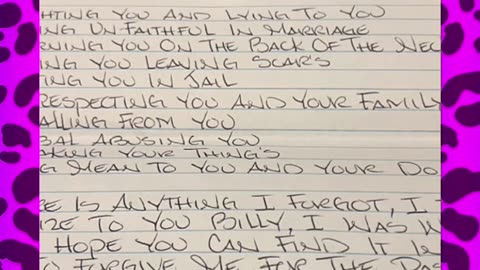 HTING YOU AND LYING TO YOU
NG UNFAITHFUL IN MARRIAGE
RNING YOU ON THE BACK OF THE NEC
ING YOU LEAVING SCAR'S
TING YOU IN JAIL
RESPECTING YOU AND YOUR FAMILY
ALLING FROM YOU
BAL ABUSING YOU
AKING YOUR THING'S
G MEAN TO YOU AND YOUR DO
RE IS ANYTHING I FORGOT, I
IZE TO YOU BILLY, I WAS W
HOPE YOU CAN FIND IT IN
FORGIVE ME FOR THE PAS